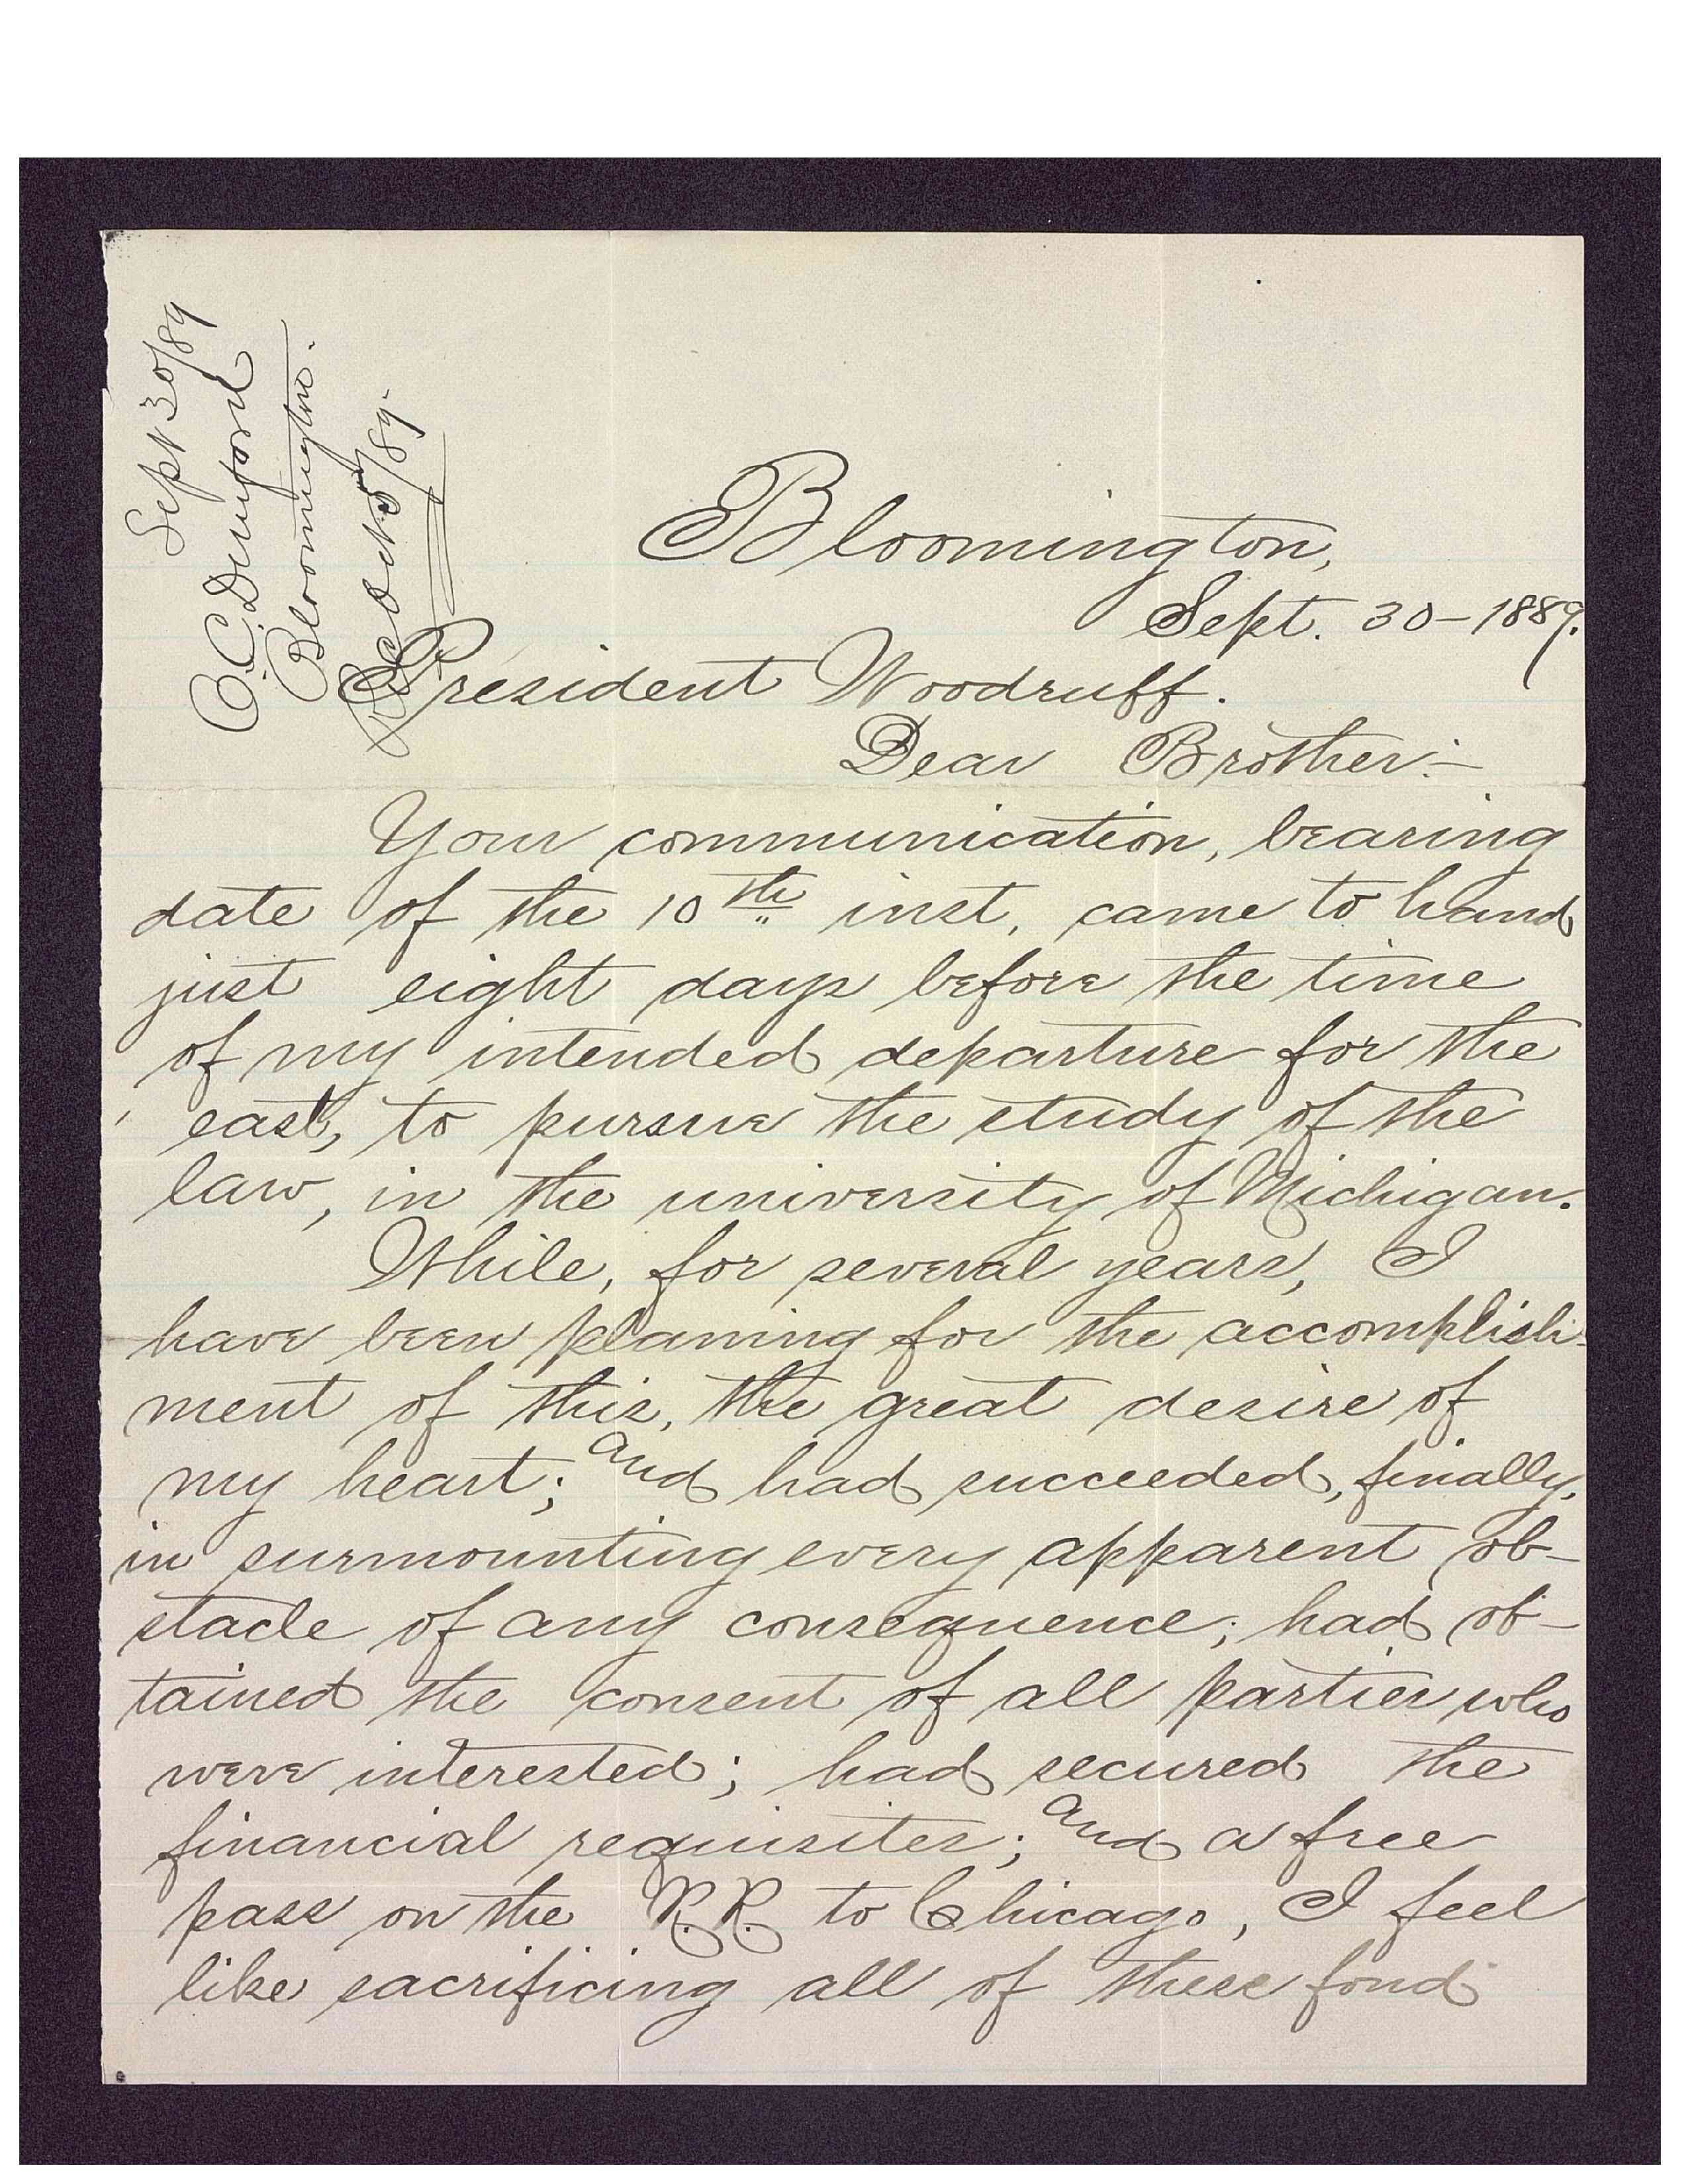 Sept 30/89
C. C. Dunford
Bloomington.
Recd Oct 5/89.
Bloomington,
Sept. 30-1889.
President Woodruff.
Dear Brother:-
Your communication, bearing
date of the 10th inst, came to hand
just eight days before the time
of my intended departure for the
east, to pursue the study of the
law, in the university of Michigan.
While, for several years, I
have been planing for the accomplish-
ment of this, the great desire of
my heart; and had succeeded, finally,
in surmounting every apparent ob-
stacle of any consequence; had ob-
tained the consent of all parties who
were interested; had secured the
financial requisites; and a free
pass on the R.R. to Chicago, I feel
like sacrificing all of these fond